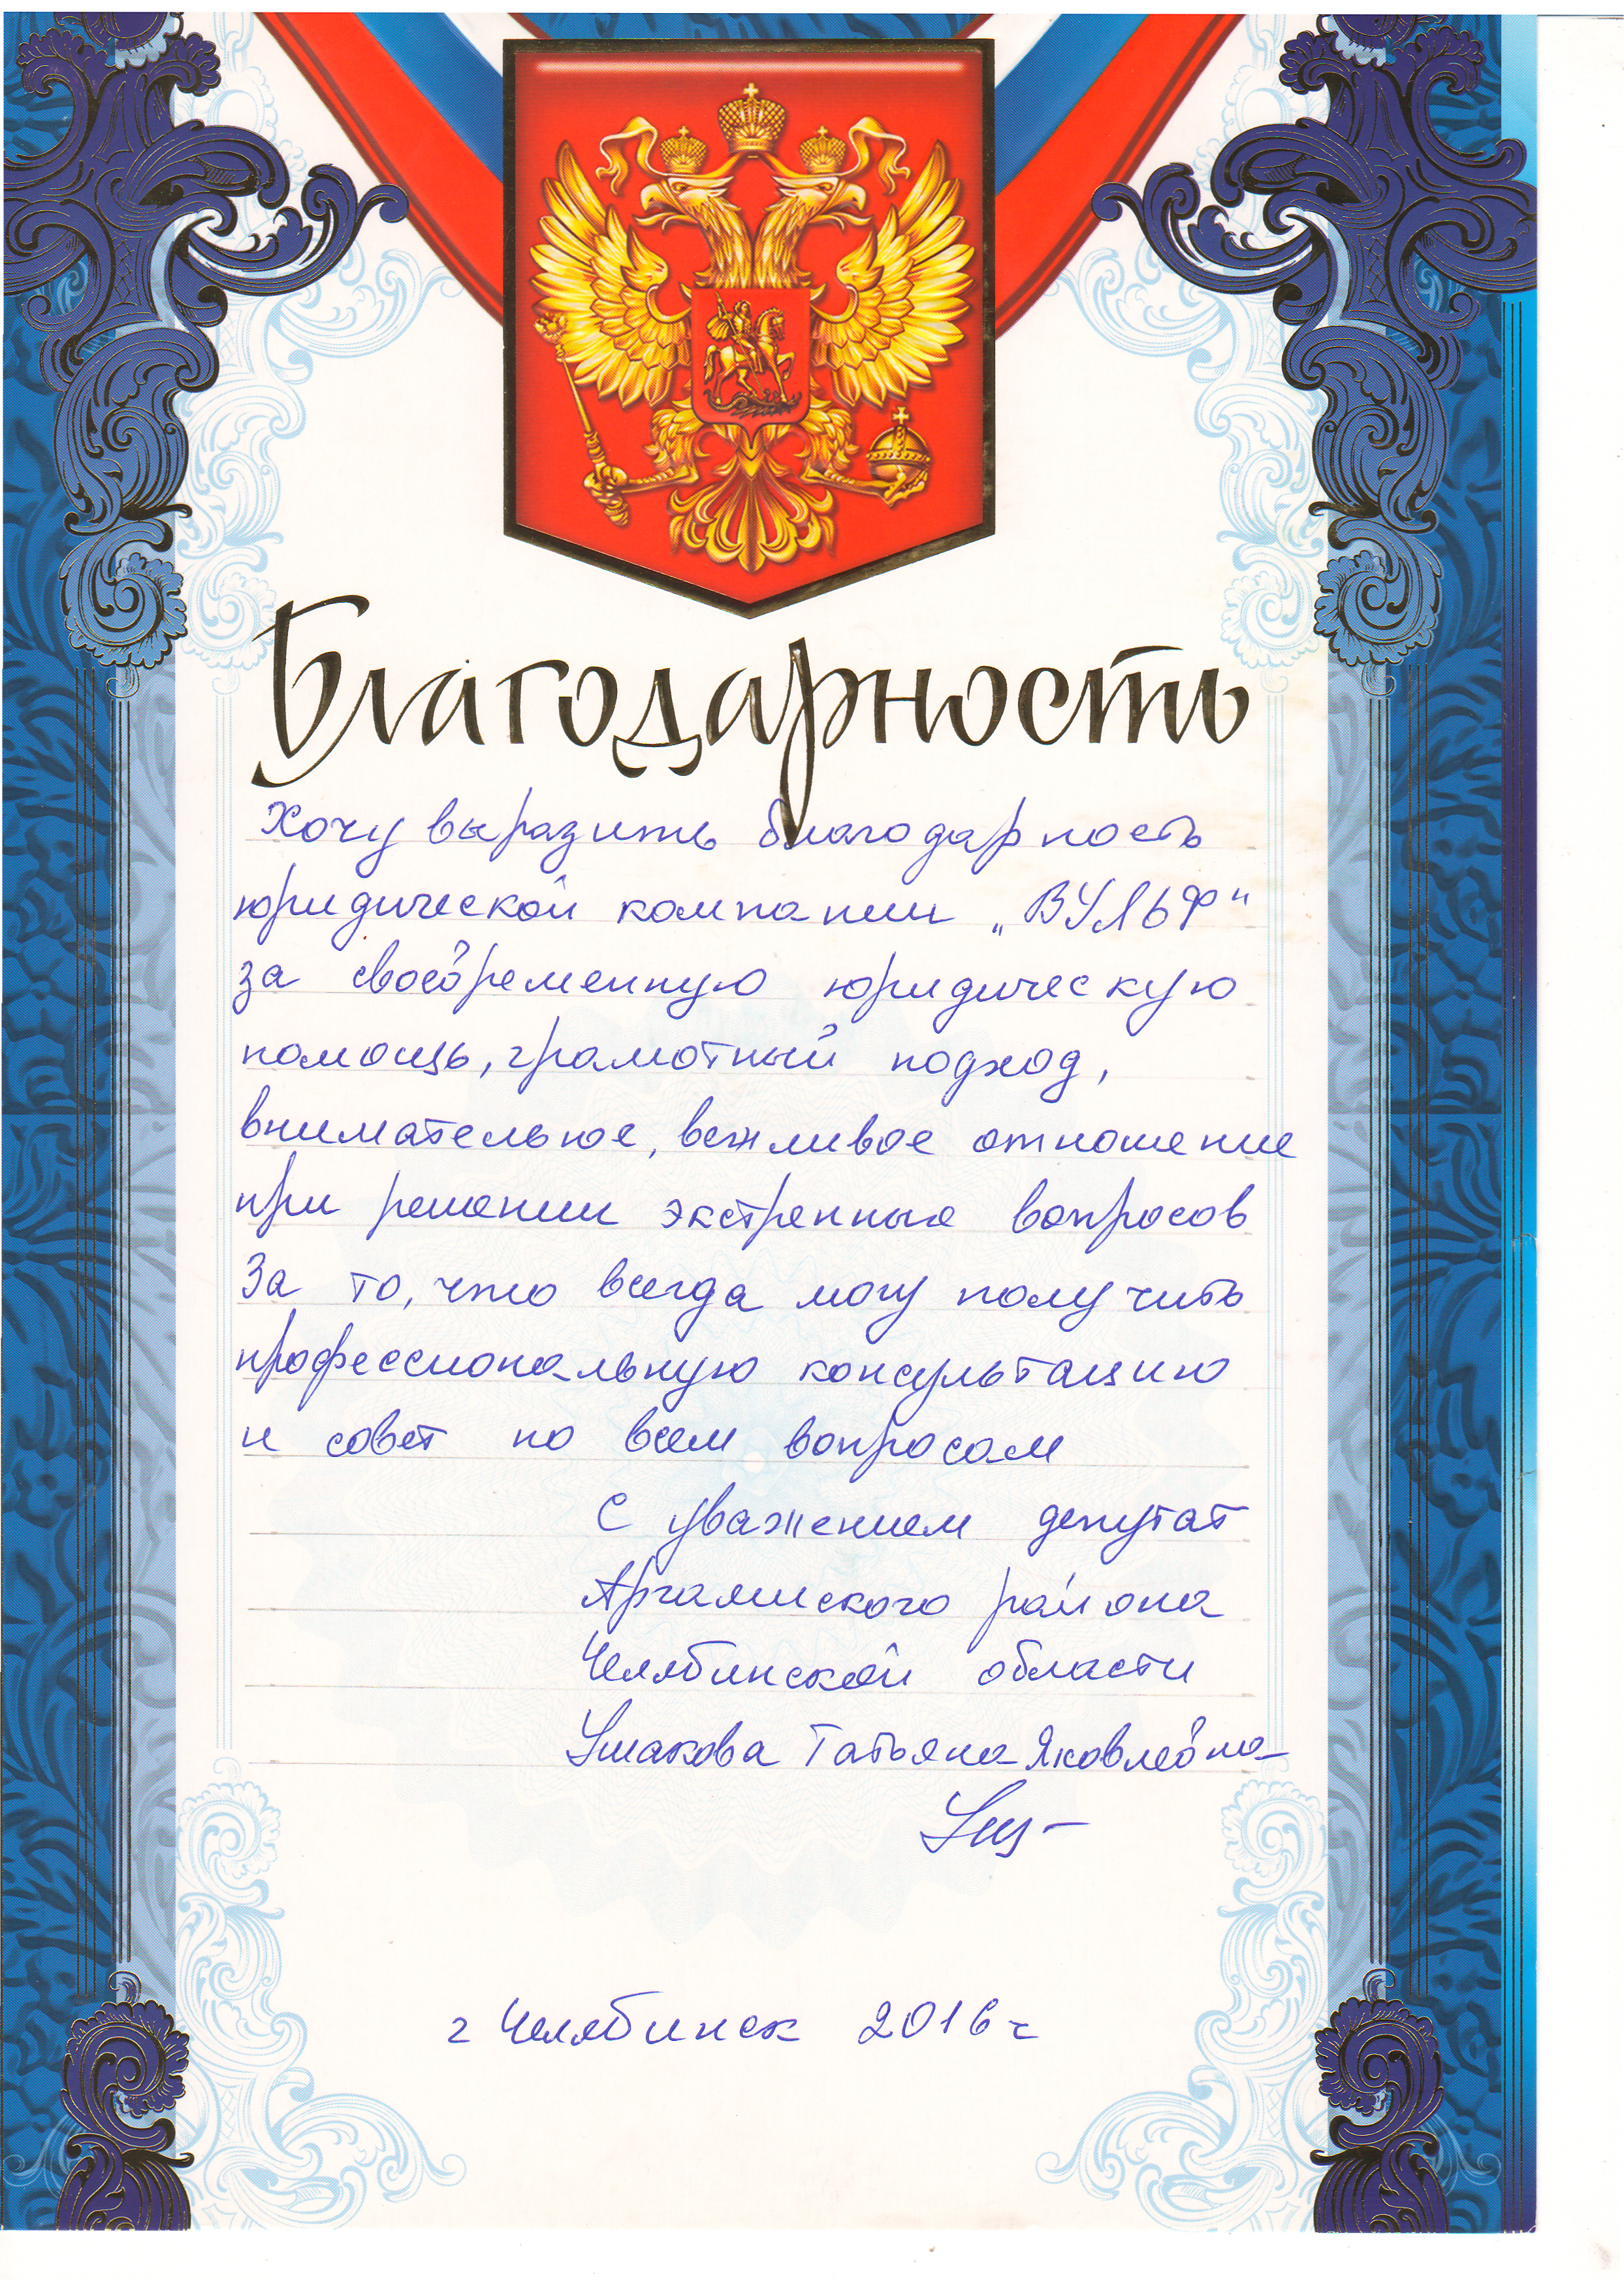 Благодарность
Хочу выразить благодарность
юридической компании „ВУЛЬФ"
за своевременную юридическую
помощь, грамотный подход,
внимательное, вежливое отношение
при решении экстренные вопросов
За то, что всегда могу получить
профессиональную консультацию
и совет по всем вопросам
С уважением депутат
Аргаяшского района
Челябинской области
Ушакова Татьяна Яковлевна
г Челябинск 2016 г